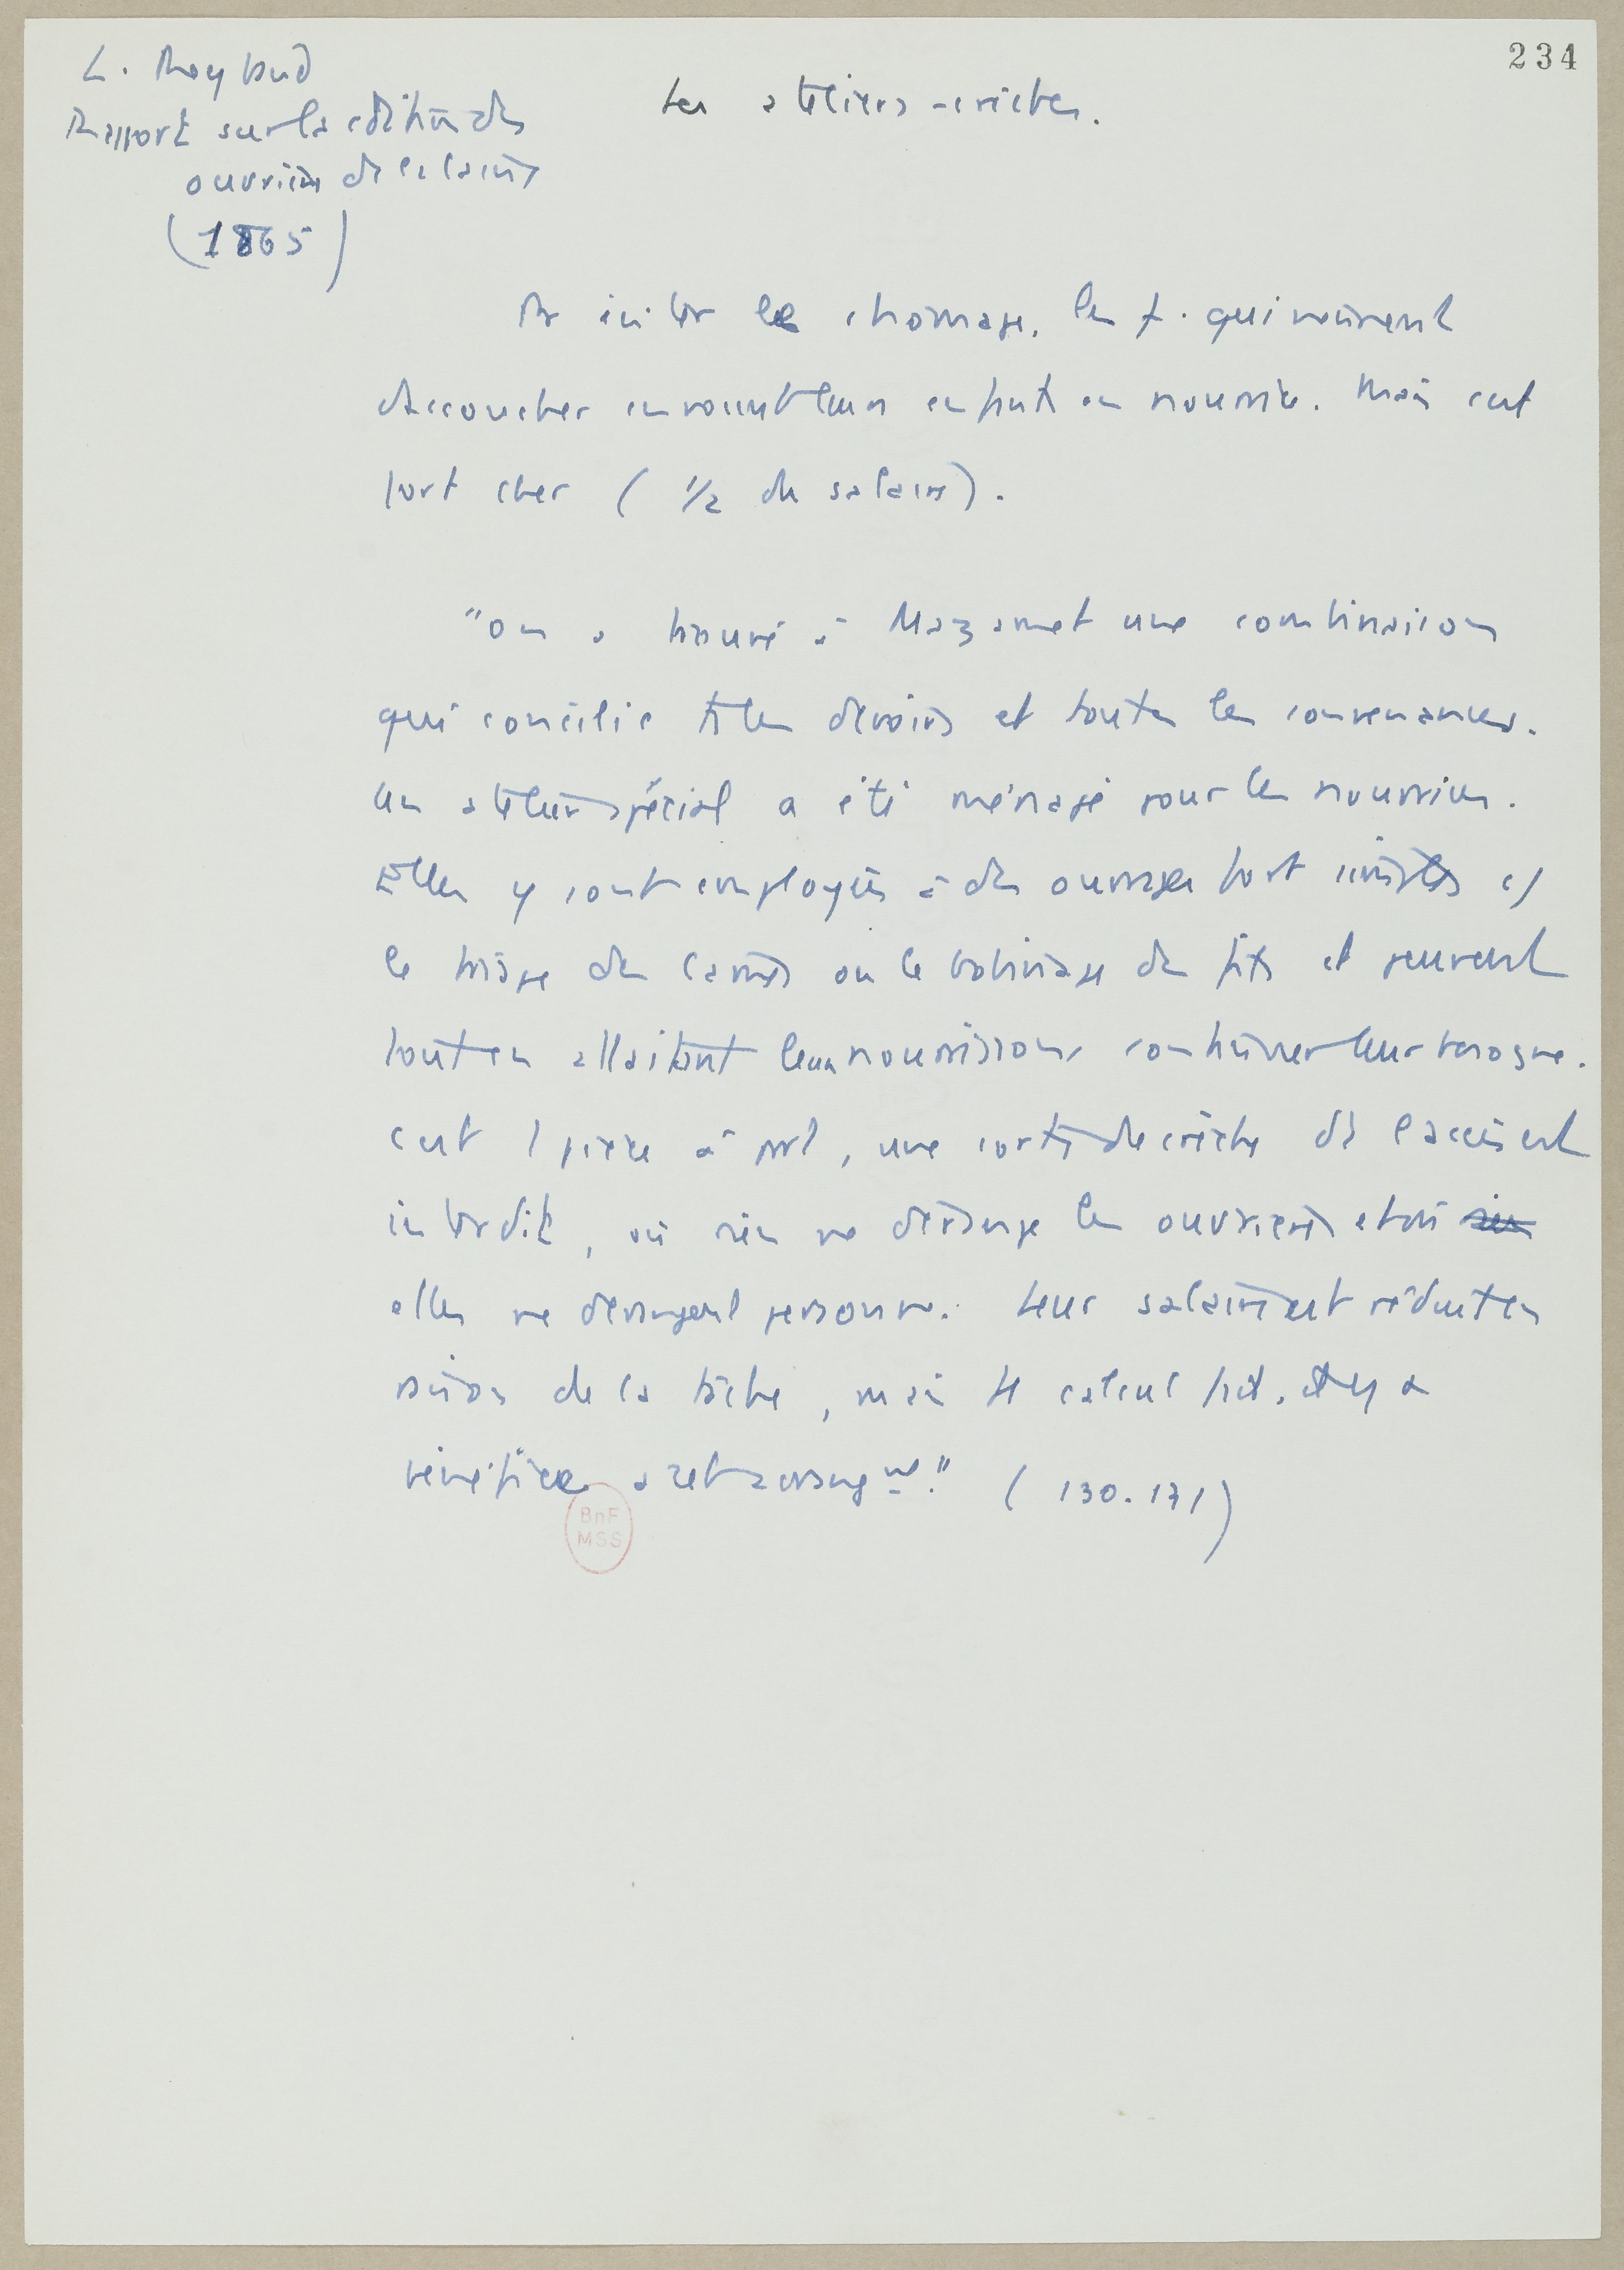 234
L. Reybaud
Rapport sur la cdition des
ouvriers de la laine
(1865)
Les ateliers-crèches.
Pr éviter le chômage, les f. qui viennent
d'accoucher envoient leurs enfants en nourrice. Mais c'est
fort cher (1/2 du salaire).
"On a trouvé à Mazamet une combinaison
qui concilie ts les devoirs et toutes les convenances.
Un atelier spécial a été ménagé pour les nourrices.
Elles y sont employées à des ouvrages fort simples
le triage des laines ou le bobinage des fils et peuvent
tout en allaitant leurs nourrissons continuer leur besogne.
C'est 1 pièce à part, une sorte de crèche dt l'accès est
interdit, où rien ne dérange les ouvrières et où
elles ne dérangent personne. Leur salaire est réduit en
raison de la tâche, mais tt calcul fait, il y a
bénéfice à cet arrangnt." (130.131)
BnF
MSS